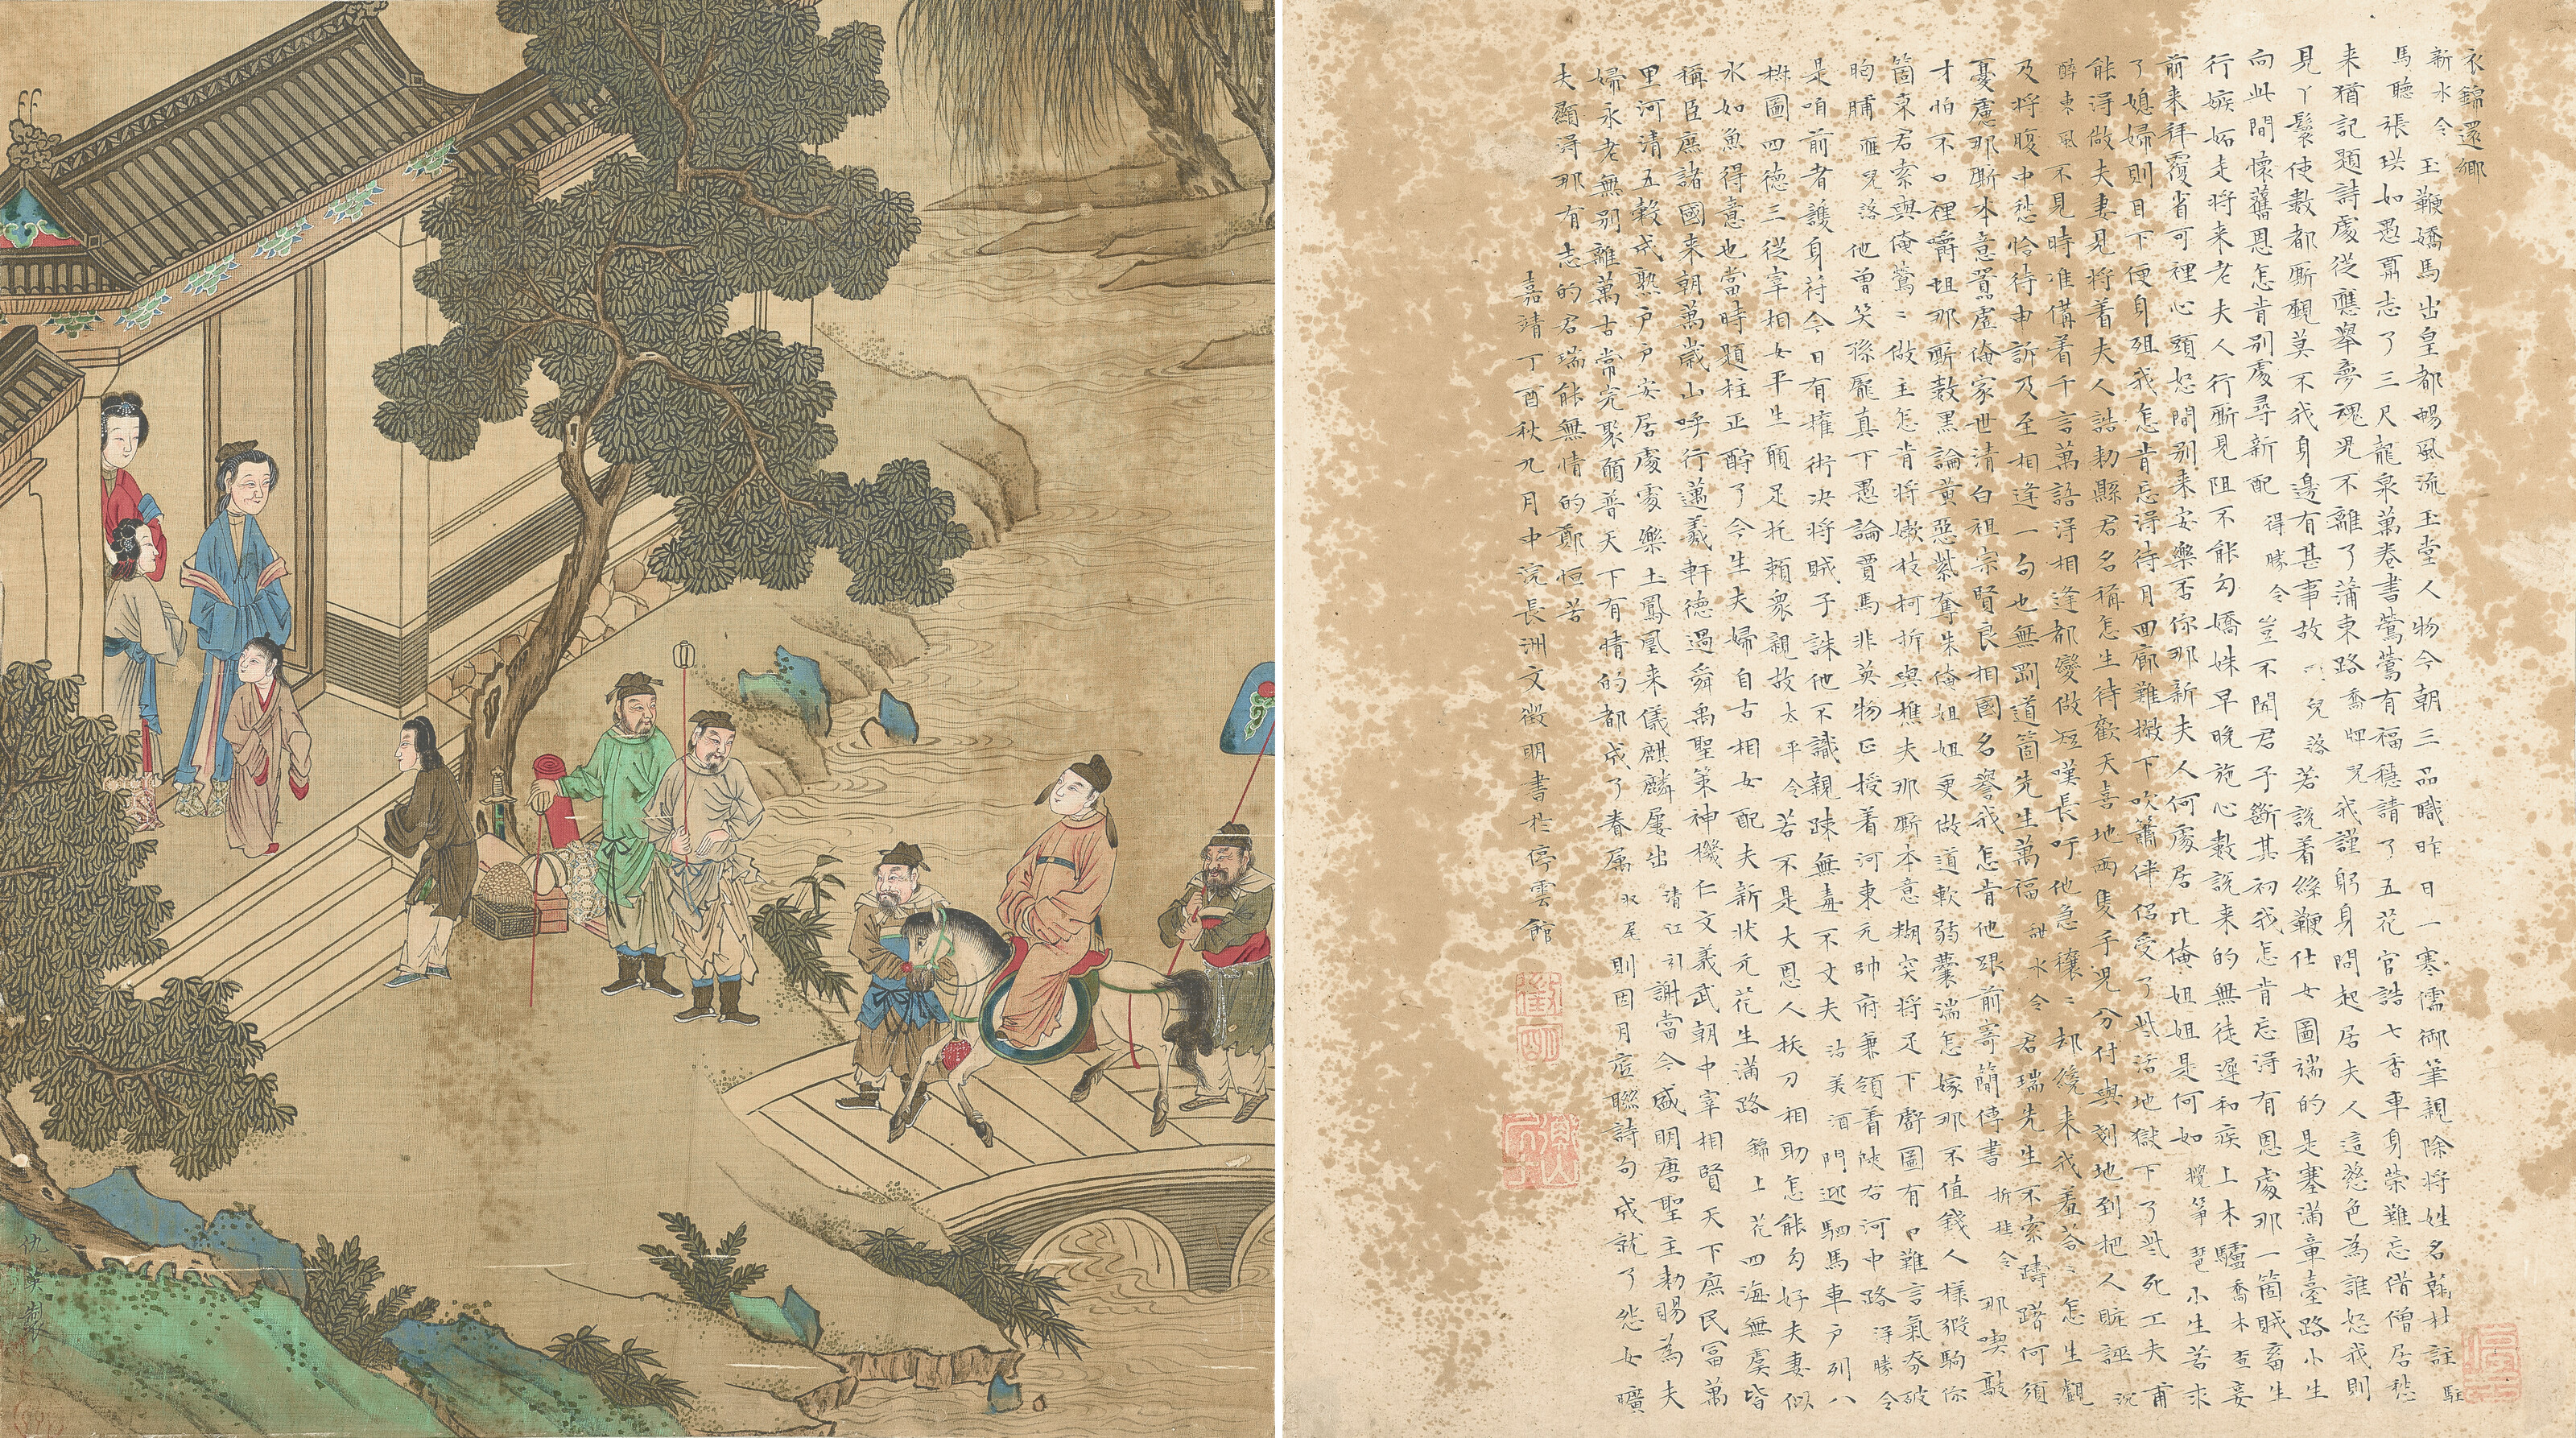 衣錦還鄉
新水令 玉鞭嬌馬出皇都暢風流玉堂人物今朝三品職昨日一寒儒御筆親除將姓名翰林註 駐
馬聽 張珙如愚酬志了三尺龍泉萬卷書鶯鶯有福穩請了五花官誥七香車身榮難忘借僧居愁
来猶記題詩處從應舉夢魂兒不離了蒲東路 喬牌兒 我謹躬身問起居夫人這慈色為誰怒我則
見丫鬟使數都厮覷莫不我身邊有甚事故 兒落 若說着絲鞭仕女圖端的是塞滿章臺路小生
向此間懷舊恩怎肯別處尋新配 得勝令 豈不聞君子斷其初我怎肯忘得有恩處那一箇賊畜生
行嫉妬走將来老夫人行厮見阻不能勾嬌姝早晚施心數說来的無徒遲和疾上木驢 喬木查 妾
前来拜覆省可裡心頭怒間別来安樂否你那新夫人何處居比俺姐姐是何如 攪箏琶 小生若求
了媳婦則目下便身殂我怎肯忘得待月回廊難撇下吹簫伴侶受了些活地獄下了些死工夫甫
能得做夫妻見將着夫人誥勅縣君名稱怎生待歡天喜地兩隻手兒分付與刬地到把人贓誣 沉
醉東風 不見時准備着千言萬語得相逢都變做短嘆長吁他急穰〻却纔来我羞答〻怎生覷
及將腹中愁恰待申訴及至相逢一句也無剛道箇先生萬福 甜水令 君瑞先生不索躊躇何須
憂慮那厮本意囂虛俺家世清白祖宗賢良相國名譽我怎肯他跟前寄簡傳書 折桂令 那喫敲
才怕不口裡嚼蛆那厮數黑論黃惡紫奪朱俺姐姐更做道軟弱囊湍怎嫁那不值錢人樣猳駒你
箇東君索與俺鶯〻做主怎肯將嫩枝柯折與樵夫那厮本意糊突將足下虧圖有口難言氣夯破
胸脯 雁兒落 他曾笑孫龐真下愚論賈馬非英物正授着河東元帥府兼領着陝右河中路 得勝令
是咱前者護身符今日有權術決將賊子誅他不識親踈無毒不丈夫 沽美酒 門迎駟馬車戶列八
椒圖四德三從宰相女平生願足托賴衆親故 太平令 若不是大恩人拔刀相助怎能勾好夫妻似
水如魚得意也當時題柱正酧了今生夫婦自古相女配夫新狀元花生滿路 錦上花 四海無虞皆
稱臣庶諸國来朝萬歲山呼行邁羲軒德過舜禹聖策神機仁文義武朝中宰相賢天下庶民富萬
里河清五穀成熟戶戶安居處處樂土鳳凰来儀麒麟屢出 清江引 謝當今盛明唐聖主勅賜為夫
婦永老無別離萬古常完聚願普天下有情的都成了眷屬 收尾 則因月底聯詩句成就了怨女曠
夫顯得那有志的君瑞能無情的鄭恒苦
嘉靖丁酉秋九月中浣長洲文徵明書於停雲館
徵明
仇英製